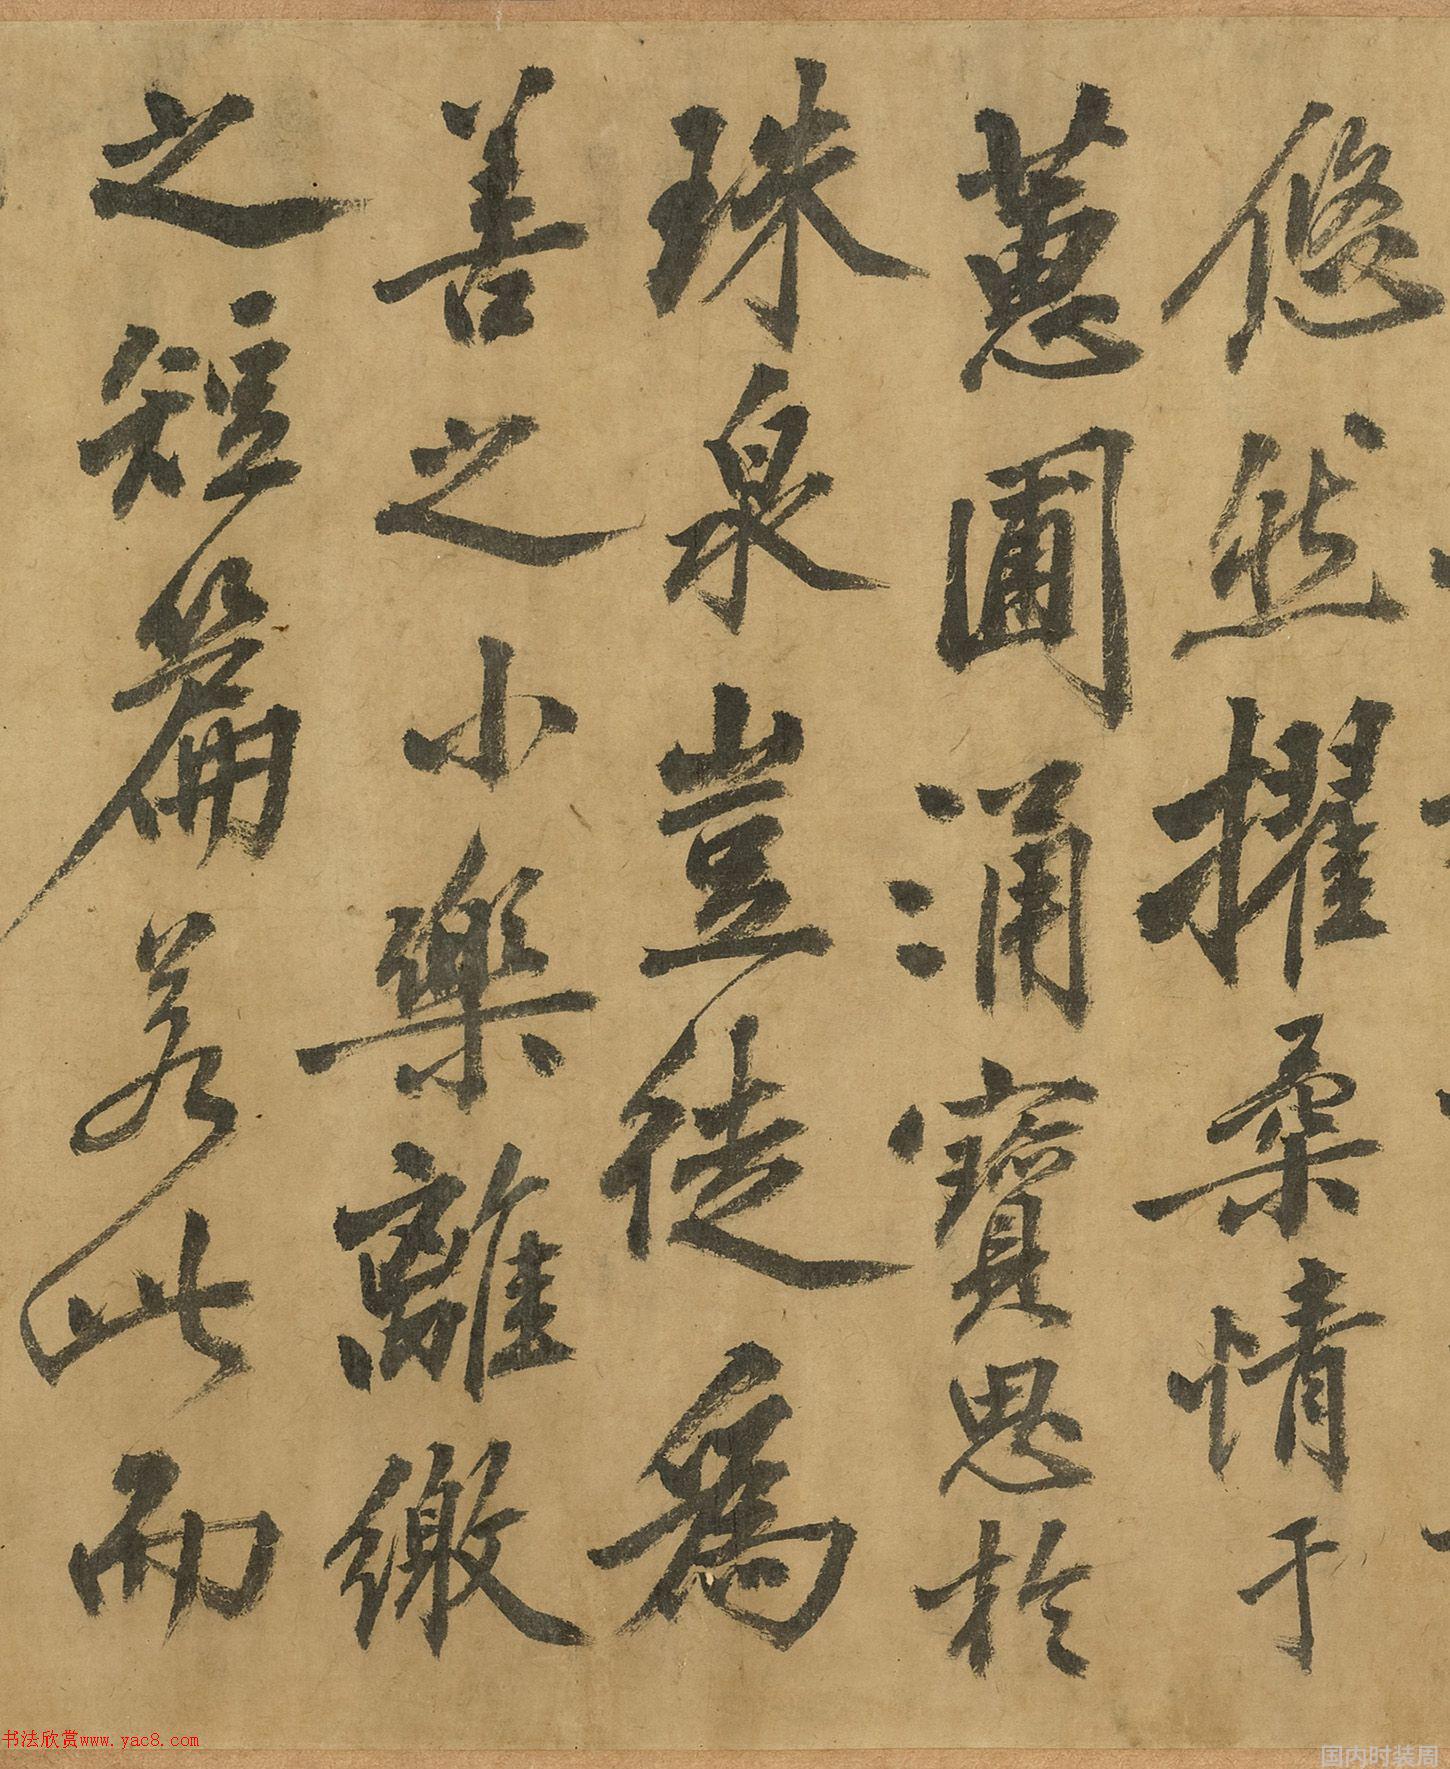 悠然擢柔情于
蕙圃涌寶思於
珠泉豈徒為
善之小樂離繳
之短篇若此而
书法欣赏www.yac8.com
国内时装周